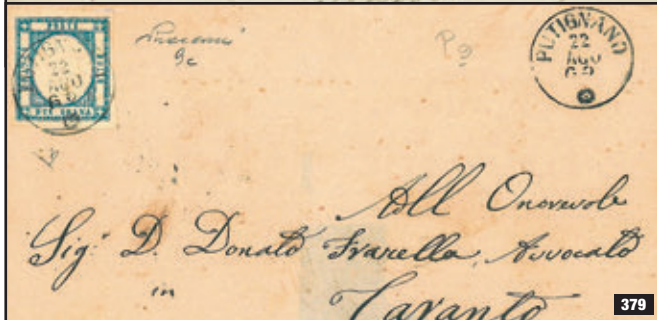 PUTIGNANO
22
AGO
62
22
AGO
62
9c
All Onorevole
Sig.r D. Donato Frarella, Avvocato
in
Taranto
379